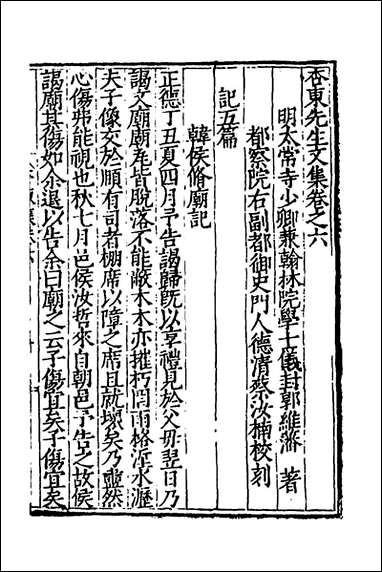 杏東先生文集卷之六
明太常寺少卿兼翰林院學士儀封郭維藩 著
都察院右副都御史門人德清蔡汝楠校刻
記五篇
韓侯脩廟記
正德丁丑夏四月予告謁歸既以享禮見於父母翌日乃
謁文廟廟瓦皆脫落不能蔽木木亦摧朽罔雨格派水瀝
夫子像交於順有司者棚席以障之席且就壞矣乃衋然
心傷弗能視也秋七月邑侯汝哲來自朝邑予告之故侯
謁廟其傷如余退以告余曰廟之云云子傷宜矣子傷宜矣